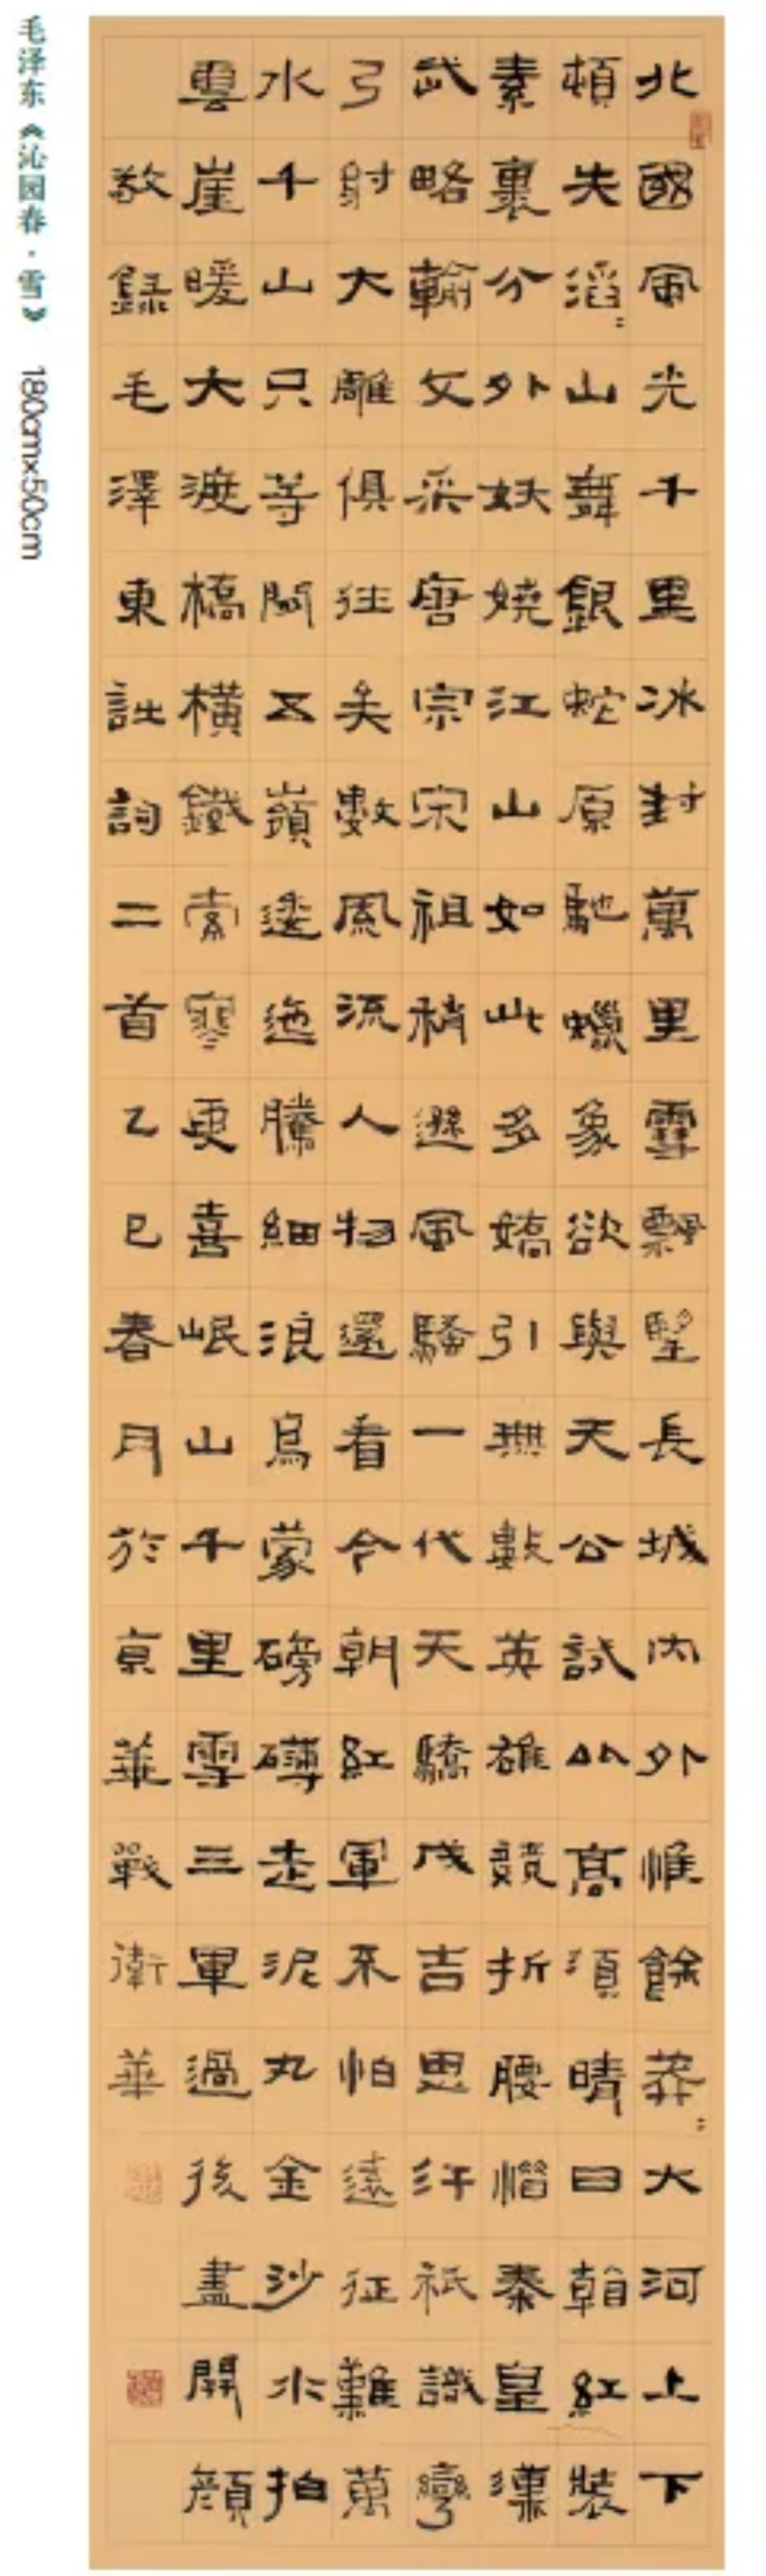 毛泽东《沁园春·雪》 180cm×50cm
北國風光千里冰封萬里雪飄望長城內外惟餘莽〻大河上下
頓失滔〻山舞銀蛇原馳蠟象欲與天公試比高須晴日看紅裝
素裹分外妖嬈江山如此多嬌引無數英雄競折腰惜秦皇漢
武略輸文采唐宗宋祖稍遜風騷一代天驕成吉思汗祇識彎
弓射大雕俱往矣數風流人物還看今朝紅軍不怕遠征難萬
水千山只等閑五嶺逶迤騰細浪烏蒙磅礴走泥丸金沙水拍
雲崖暖大渡橋橫鐵索寒更喜岷山千里雪三軍過後盡開顏
敬錄毛澤東詩詞二首乙巳春月於京華戰衛華